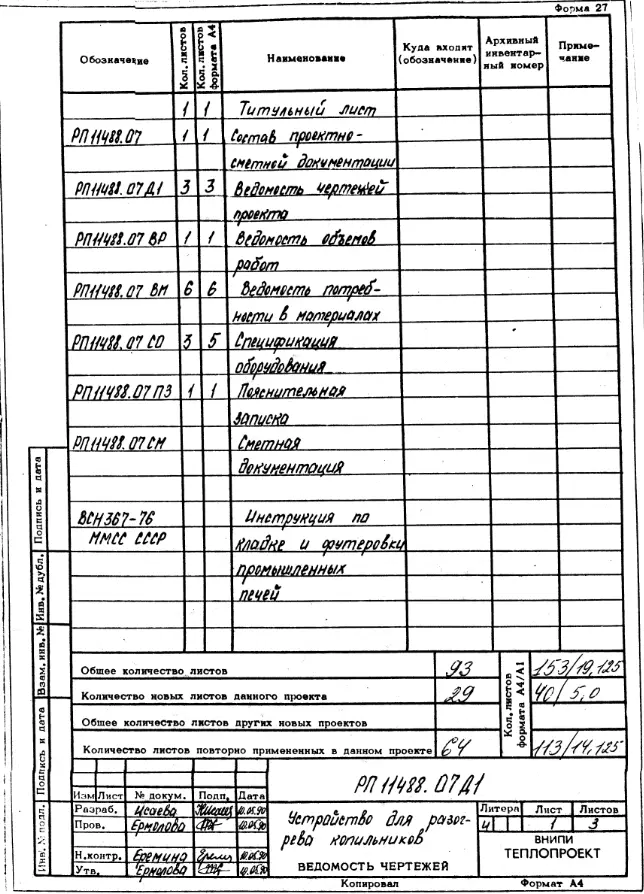 Форма 27
Обозначение
Кол. листов
Кол. листов формата А4
Наименование
Куда входит (обозначение)
Архивный инвентарный номер
Примечание
1 1 Титульный лист
РП11488.07 1 1 Состав проектно-
сметной документации
РП11488.07Д1 3 3 Ведомость чертежей
проекта
РП11488.07 ВР 1 1 Ведомость объемов
работ
РП11488.07 ВМ 6 6 Ведомость потреб-
ности в материалах
РП11488.07 СО 3 5 Спецификация
оборудования
РП11488.07 ПЗ 1 1 Пояснительная
записка
РП11488.07 СМ Сметная
документация
ВСН367-76 Инструкция по
ММСС СССР кладке и футеровки
промышленных
печей
Общее количество листов 93
Количество новых листов данного проекта 29
Общее количество листов других новых проектов
Количество листов повторно примененных в данном проекте 64
Кол. листов формата А4/А1
153/19,125
40/5,0
113/14,125
РП 11488.07Д1
Изм Лист № докум. Подп. Дата
Разраб. Исаева 10.05.90
Пров. Ермолова 10.05.90
Н.контр. Еремина 10.05.90
Утв. Ермолова 10.05.90
Устройство для разог-
рева копильников
ВЕДОМОСТЬ ЧЕРТЕЖЕЙ
Литера Лист Листов
И 1 3
ВНИПИ
ТЕПЛОПРОЕКТ
Копировал Формат А4
Инв. № подл.
Подпись и дата
Взам. инв. №
Инв. № дубл.
Подпись и дата